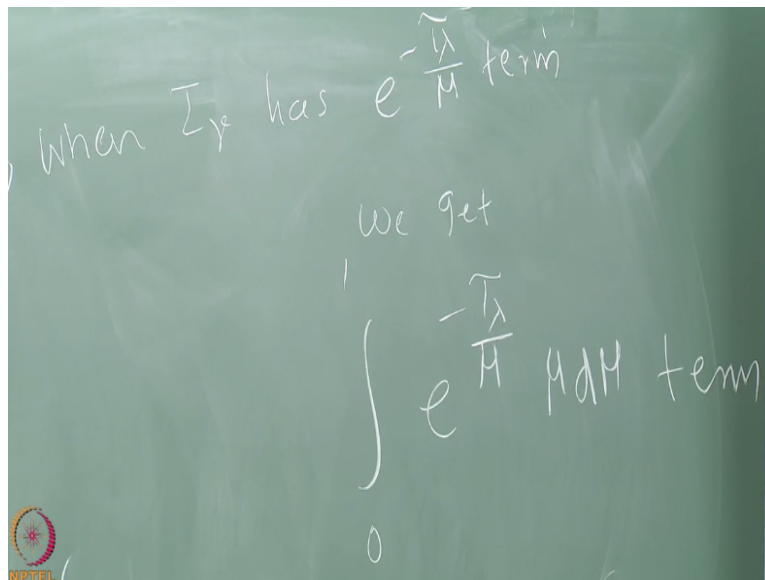 when I_γ has e^{-τ_λ/μ} term
we get
∫_0^1 e^{-τ_λ/μ} μdμ term
NPTEL